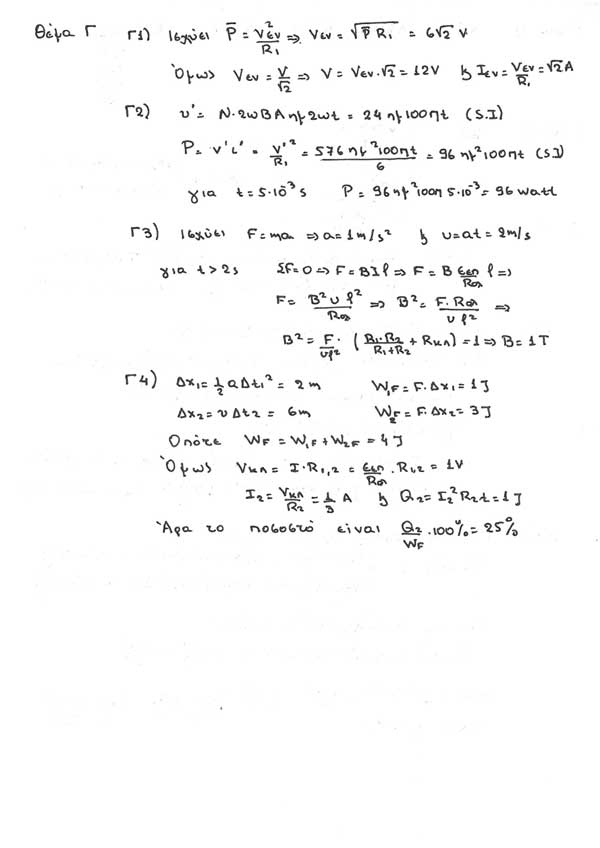 Θέμα Γ Γ1) Ισχύει P̄ = Vεν²/R₁ ⇒ Vεν = √(P̄ R₁) = 6√2 V
Όμως Vεν = V/√2 ⇒ V = Vεν·√2 = 12V & Iεν = Vεν/R₁ = √2 A
Γ2) υ' = N·2ωBA ημ2ωt = 24 ημ100πt (S.I)
P = v'i' = v'²/R₁ = 576 ημ²100πt/6 = 96 ημ²100πt (SI)
για t = 5·10⁻³ s P = 96 ημ²100π 5·10⁻³ = 96 watt
Γ3) Ισχύει F = ma ⇒ a = 1 m/s² & υ = at = 2m/s
για t > 2s ΣF = 0 ⇒ F = BIℓ ⇒ F = B Eεπ/Rολ ℓ ⇒
F = B²υℓ²/Rολ ⇒ B² = F·Rολ/υℓ² ⇒
B² = F/υℓ² · (R₁·R₂/R₁+R₂ + Rκλ) = 1 ⇒ B = 1T
Γ4) Δx₁ = 1/2 aΔt₁² = 2m W₁F = F·Δx₁ = 1J
Δx₂ = υΔt₂ = 6m W₂F = F·Δx₂ = 3J
Οπότε WF = W₁F + W₂F = 4J
Όμως Vκλ = I·R₁,₂ = Eεπ/Rολ · R₁,₂ = 1V
I₂ = Vκλ/R₂ = 1/3 A & Q₂ = I₂²R₂t = 1J
Άρα το ποσοστό είναι Q₂/WF · 100% = 25%